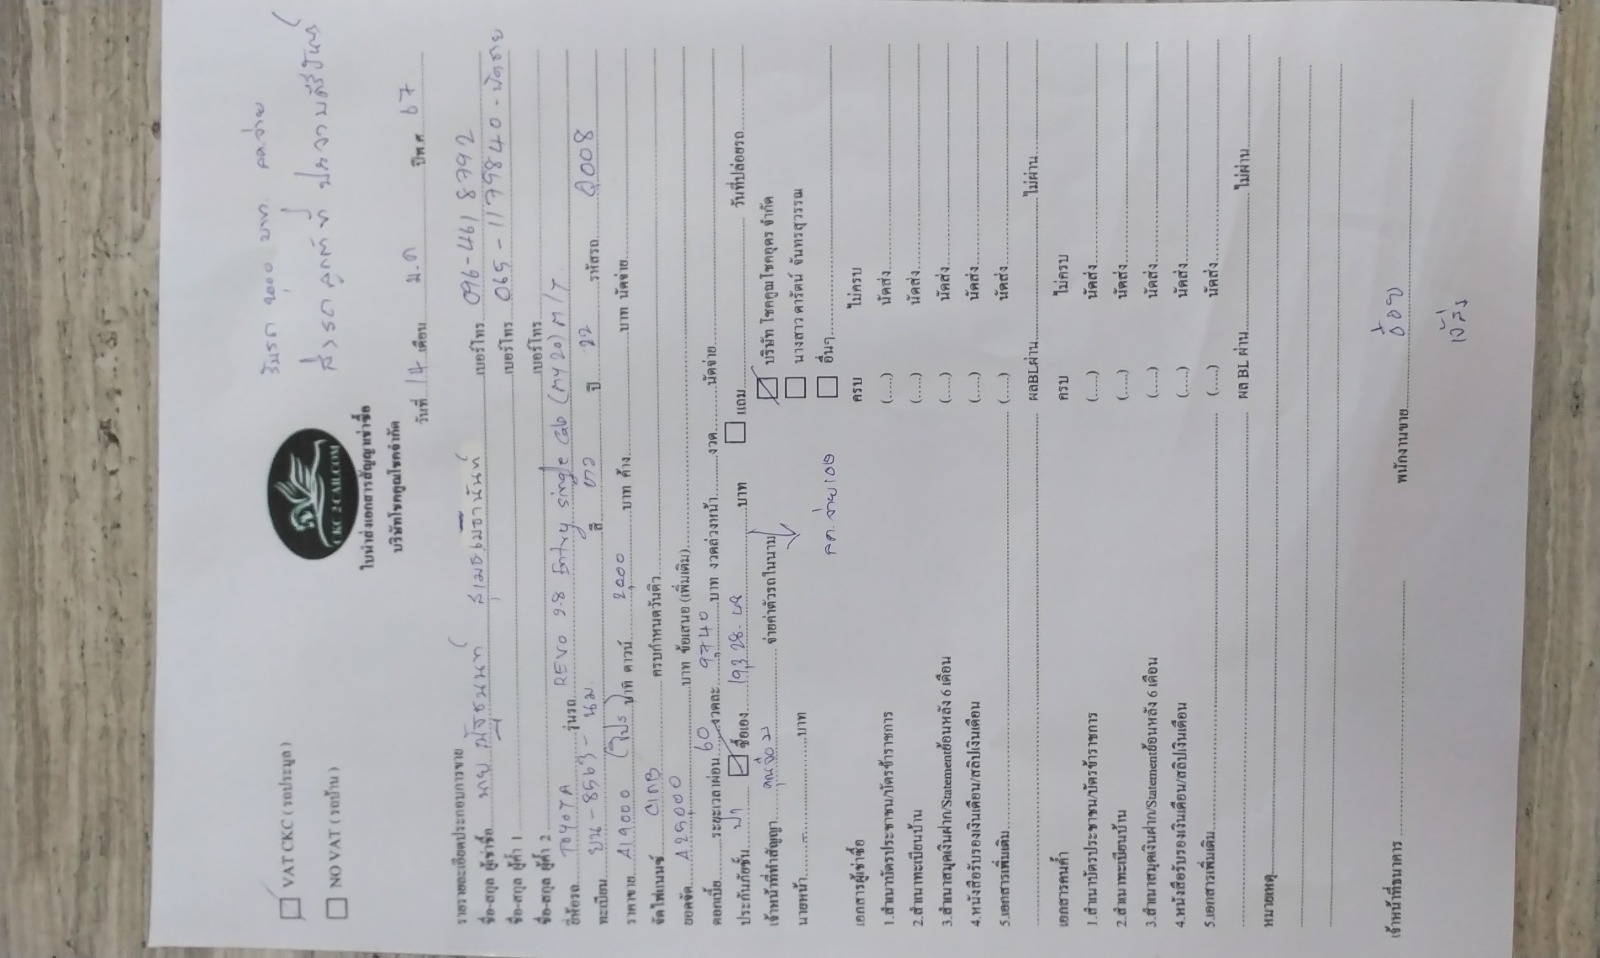 รับรถ 2000 บาท
ส่งรถ
VAT CKC (รถประมูล)
NO VAT (รถบ้าน)
CKC 2 CAR.COM
ใบนำส่งเอกสารสัญญาเช่าซื้อ
บริษัทโชคคูณโชคจำกัด
วันที่ 14 เดือน ม.ค ปีพ.ศ 67
รายรายละเอียดประกอบการขาย
ชื่อ-สกุล ผู้เช่าซื้อ นาย เบอร์โทร 096-461 8792
ชื่อ-สกุล ผู้ค้ำ 1 เบอร์โทร 065-1179840
ชื่อ-สกุล ผู้ค้ำ 2 เบอร์โทร
ยี่ห้อรถ TOYOTA รุ่นรถ REVO 2.8 Entry single Cab (MY20) M/T
ทะเบียน ยน-8563-นม สี ขาว ปี 22 รหัสรถ 2008
ราคาขาย 419000 (โปร) บาท ดาวน์ 2,000 บาท ค้าง บาท นัดจ่าย
จัดไฟแนนซ์ CIMB ครบกำหนดวันคิว
ยอดจัด 425,000 บาท ข้อเสนอ (เพิ่มเติม)
ดอกเบี้ย ระยะเวลาผ่อน 60 งวดละ 9,740 บาท งวดล่วงหน้า งวด นัดจ่าย
ประกันภัยชั้น ซื้อเอง 19328.49 บาท แถม วันที่ปล่อยรถ
เจ้าหน้าที่ทำสัญญา จ่ายค่าตัวรถในนาม บริษัท โชคคูณโชคอุดร จำกัด
นายหน้า บาท นางสาว ดารัตน์ จันทรสุวรรณ
อื่นๆ
เอกสารผู้เช่าซื้อ ครบ ไม่ครบ
1.สำเนาบัตรประชาชน/บัตรข้าราชการ (.....) นัดส่ง
2.สำเนาทะเบียนบ้าน (.....) นัดส่ง
3.สำเนาสมุดเงินฝาก/Statementย้อนหลัง 6 เดือน (.....) นัดส่ง
4.หนังสือรับรองเงินเดือน/สลิปเงินเดือน (.....) นัดส่ง
5.เอกสารเพิ่มเติม (.....) นัดส่ง
ผลBLผ่าน ไม่ผ่าน
เอกสารคนค้ำ ครบ ไม่ครบ
1.สำเนาบัตรประชาชน/บัตรข้าราชการ (.....) นัดส่ง
2.สำเนาทะเบียนบ้าน (.....) นัดส่ง
3.สำเนาสมุดเงินฝาก/Statementย้อนหลัง 6 เดือน (.....) นัดส่ง
4.หนังสือรับรองเงินเดือน/สลิปเงินเดือน (.....) นัดส่ง
5.เอกสารเพิ่มเติม (.....) นัดส่ง
ผล BL ผ่าน ไม่ผ่าน
หมายเหตุ
เจ้าหน้าที่ธนาคาร พนักงานขาย